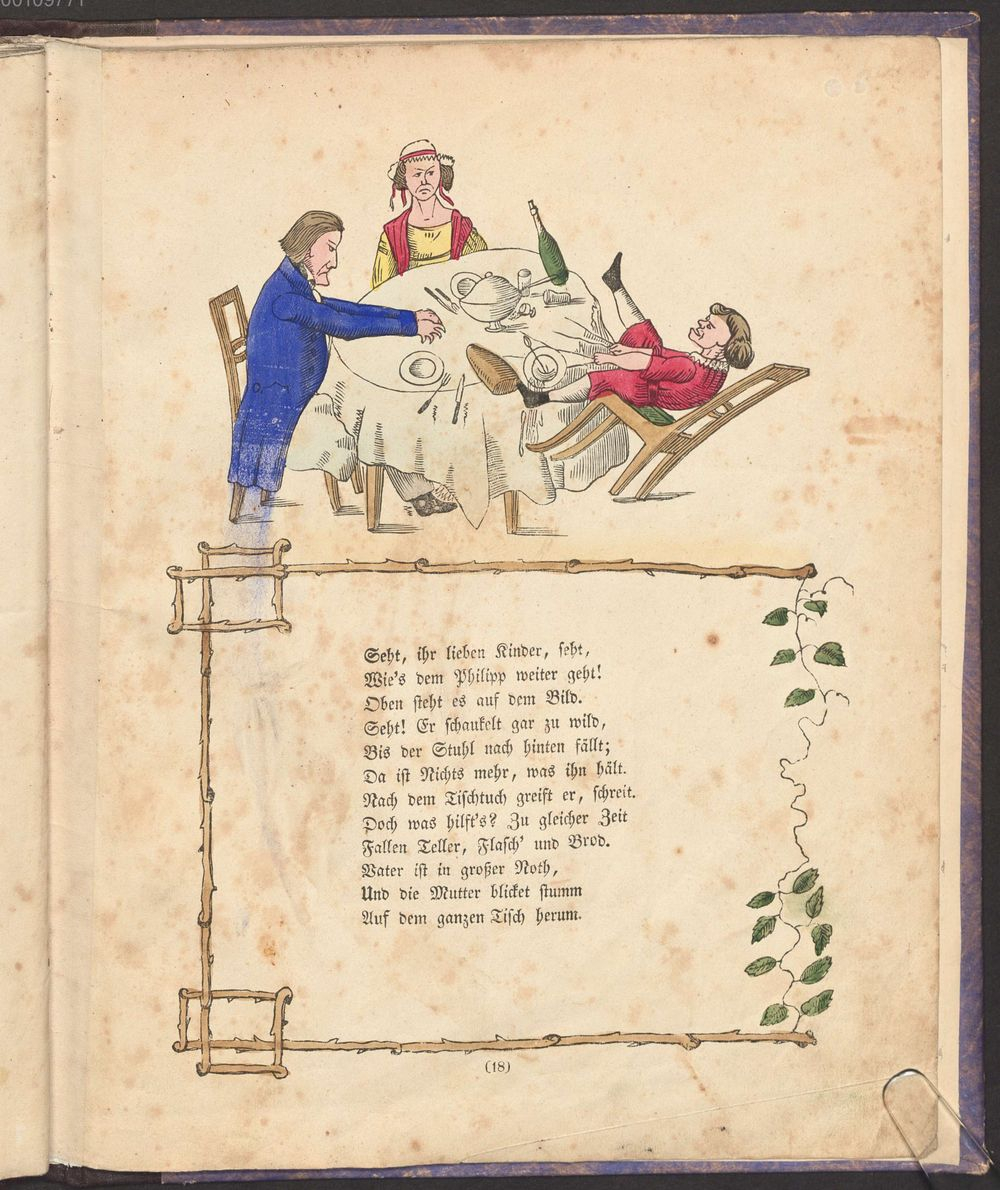 00109771
Seht, ihr lieben Kinder, seht,
Wie's dem Philipp weiter geht!
Oben steht es auf dem Bild.
Seht! Er schaukelt gar zu wild,
Bis der Stuhl nach hinten fällt;
Da ist Nichts mehr, was ihn hält.
Nach dem Tischtuch greift er, schreit.
Doch was hilft's? Zu gleicher Zeit
Fallen Teller, Flasch' und Brod.
Vater ist in großer Noth,
Und die Mutter blicket stumm
Auf dem ganzen Tisch herum.
(18)